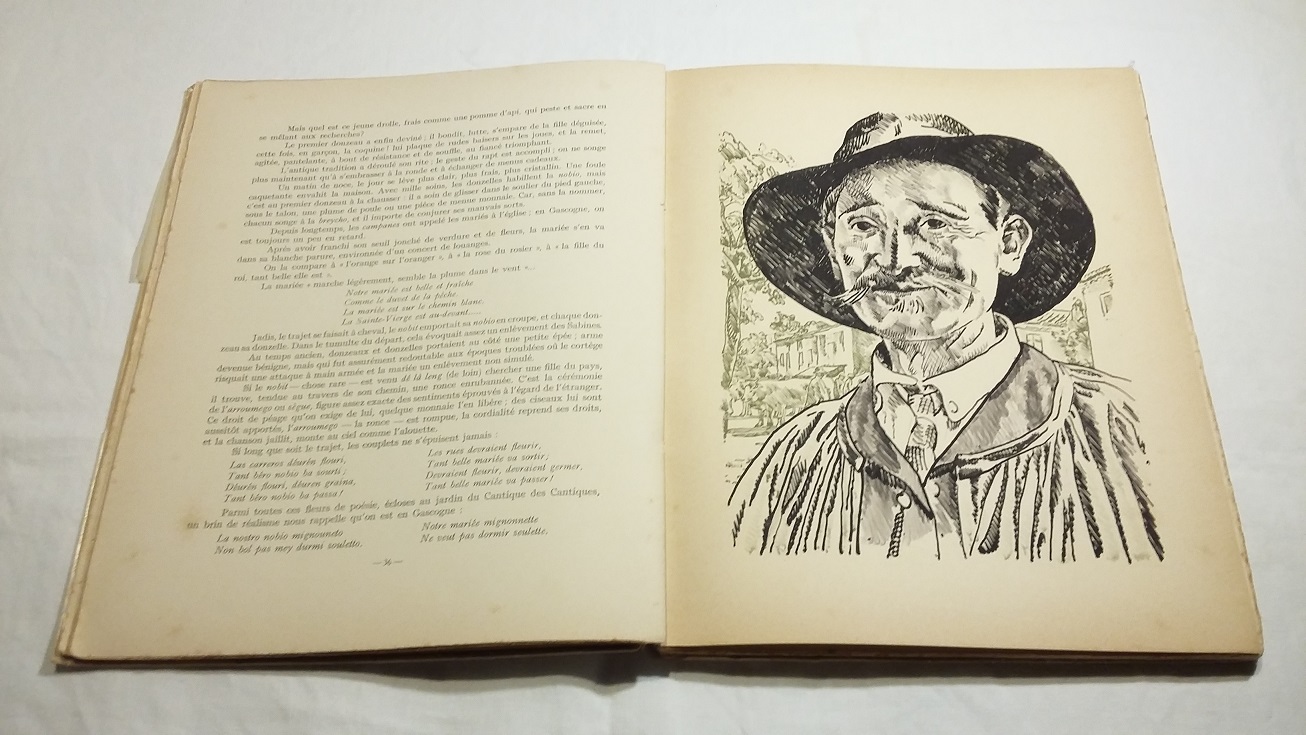 Mais quel est ce jeune drolle, frais comme une pomme d'api, qui peste et sacre en
se mêlant aux recherches?
Le premier donzeau a enfin deviné ; il bondit, lutte, s'empare de la fille déguisée,
cette fois, en garçon, la coquine ! lui plaque de rudes baisers sur les joues, et la remet,
agitée, pantelante, à bout de résistance et de souffle, au fiancé triomphant.
L'antique tradition a déroulé son rite ; le geste du rapt est accompli ; on ne songe
plus maintenant qu'à s'embrasser à la ronde et à échanger de menus cadeaux.
Un matin de noce, le jour se lève plus clair, plus frais, plus cristallin. Une foule
caquetante envahit la maison. Avec mille soins, les donzelles habillent la nobio, mais
c'est au premier donzeau à la chausser : il a soin de glisser dans le soulier du pied gauche,
sous le talon, une plume de poule ou une pièce de menue monnaie. Car, sans la nommer,
chacun songe à la breycho, et il importe de conjurer ses mauvais sorts.
Depuis longtemps, les campanes ont appelé les mariés à l'église ; en Gascogne, on
est toujours un peu en retard.
Après avoir franchi son seuil jonché de verdure et de fleurs, la mariée s'en va
dans sa blanche parure, environnée d'un concert de louanges.
On la compare à « l'orange sur l'oranger », à « la rose du rosier », à « la fille du
roi, tant belle elle est ».
La mariée « marche légèrement, semble la plume dans le vent »...
Notre mariée est belle et fraîche
Comme le duvet de la pêche.
La mariée est sur le chemin blanc.
La Sainte-Vierge est au-devant.....
Jadis, le trajet se faisait à cheval, le nobit emportait sa nobio en croupe, et chaque don-
zeau sa donzelle. Dans le tumulte du départ, cela évoquait assez un enlèvement des Sabines.
Au temps ancien, donzeaux et donzelles portaient au côté une petite épée ; arme
devenue bénigne, mais qui fut assurément redoutable aux époques troublées où le cortège
risquait une attaque à main armée et la mariée un enlèvement non simulé.
Si le nobit — chose rare — est venu dé là leng (de loin) chercher une fille du pays,
il trouve, tendue au travers de son chemin, une ronce enrubannée. C'est la cérémonie
de l'arroumego ou sègue, figure assez exacte des sentiments éprouvés à l'égard de l'étranger.
Ce droit de péage qu'on exige de lui, quelque monnaie l'en libère ; des ciseaux lui sont
aussitôt apportés, l'arroumego — la ronce — est rompue, la cordialité reprend ses droits,
et la chanson jaillit, monte au ciel comme l'alouette.
Si long que soit le trajet, les couplets ne s'épuisent jamais :
Las carreros déurén flouri,
Tant bèro nobio ba sourti ;
Déurén flouri, déuren graina,
Tant bèro nobio ba passa !
Les rues devraient fleurir,
Tant belle mariée va sortir ;
Devraient fleurir, devraient germer,
Tant belle mariée va passer !
Parmi toutes ces fleurs de poésie, écloses au jardin du Cantique des Cantiques,
un brin de réalisme nous rappelle qu'on est en Gascogne :
La nostro nobio mignouneto
Non bol pas mey durmi souletto.
Notre mariée mignonnette
Ne veut pas dormir seulette.
— 36 —